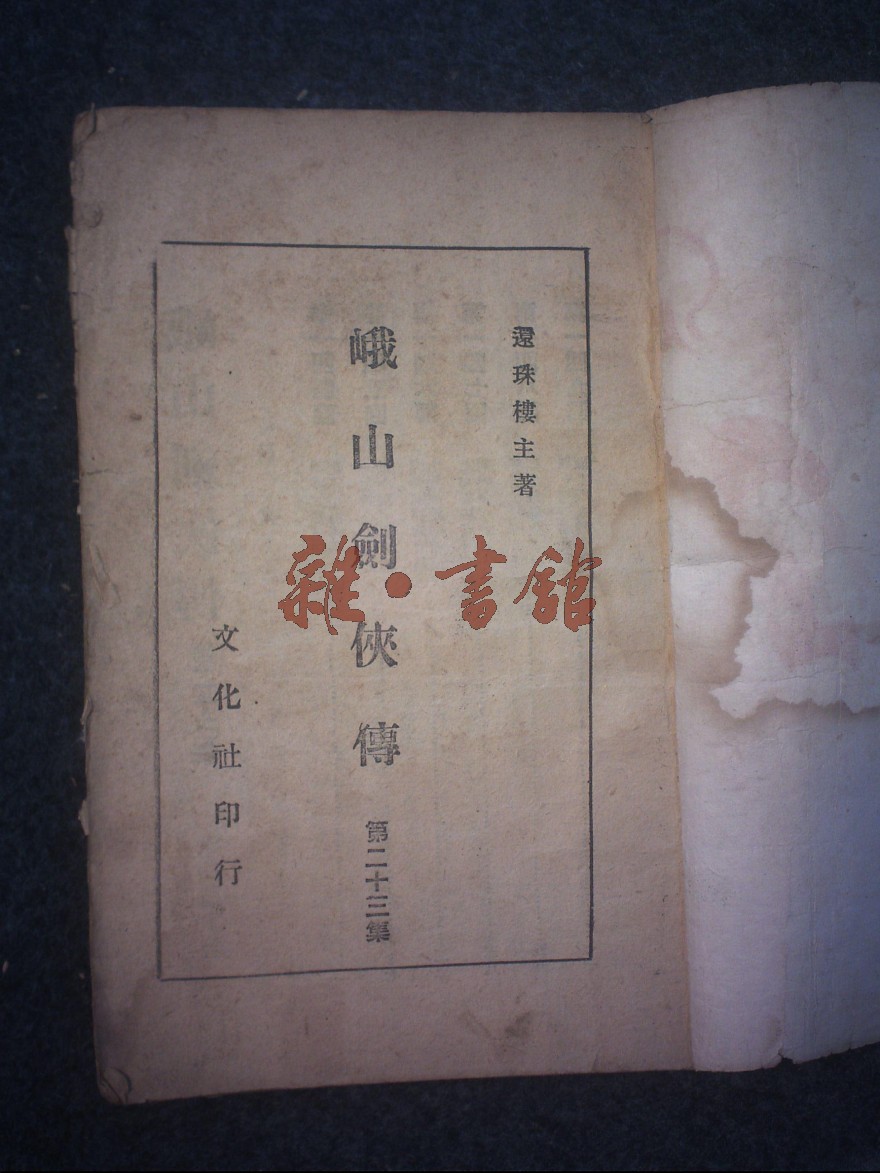 還珠樓主著
峨山劍俠傳
第二十三集
文化社印行
雜·書館